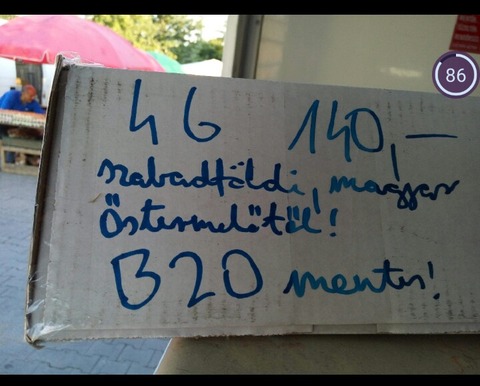 46 140,-
szabadföldi, magyar
Őstermelőtől!
B20 mentes!
86